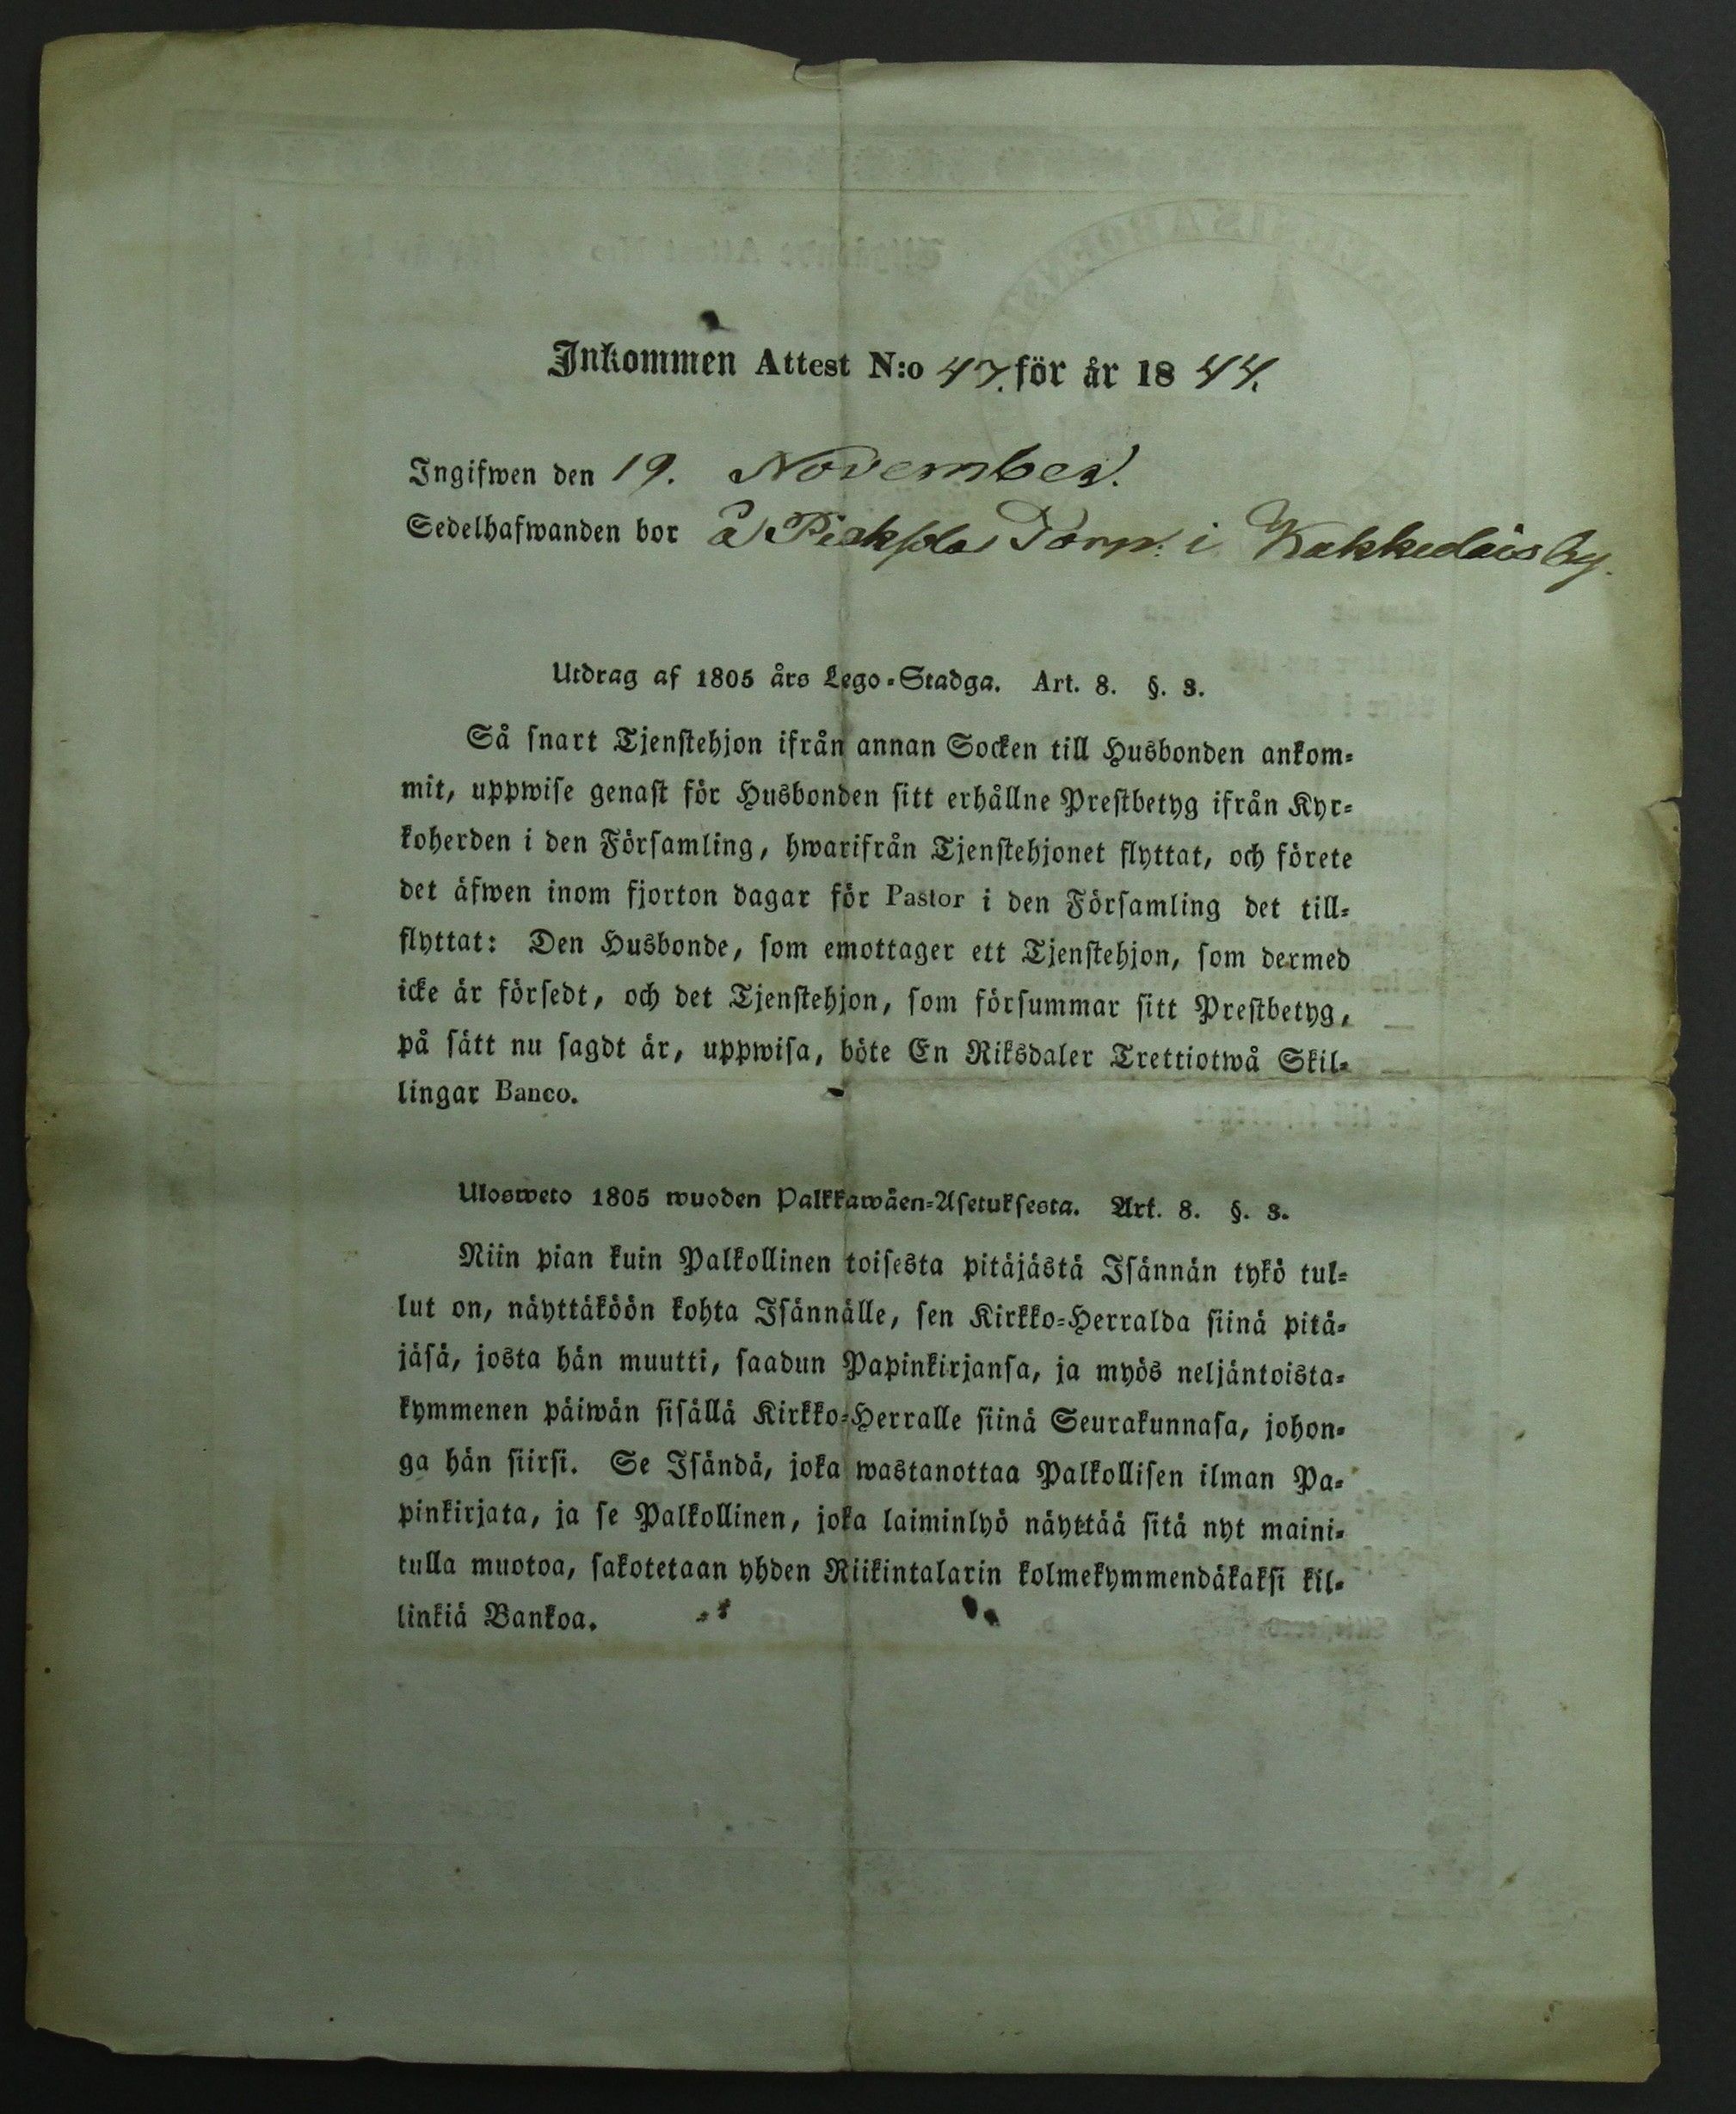 Inkommen Attest N:o 47. för år 1844.
Ingifwen den 19. November.
Sedelhafwanden bor å Torp. i by.
Utdrag af 1805 års Lego-Stadga. Art. 8. §. 3.
Så snart Tjenstehjon ifrån annan Socken till Husbonden ankom-
mit, uppwise genast för Husbonden sitt erhållne Prestbetyg ifrån Kyr-
koherden i den Församling, hwarifrån Tjenstehjonet flyttat, och förete
det äfwen inom fjorton dagar för Pastor i den Församling det till-
flyttat: Den Husbonde, som emottager ett Tjenstehjon, som dermed
icke är försedt, och det Tjenstehjon, som försummar sitt Prestbetyg,
på sätt nu sagdt är, uppwisa, böte En Riksdaler Trettiotwå Skil-
lingar Banco.
Ulosweto 1805 wuoden Palkkawäen-Asetuksesta. Art. 8. §. 3.
Niin pian kuin Palkollinen toisesta pitäjästä Isännän tykö tul-
lut on, näyttäköön kohta Isännälle, sen Kirkko-Herralda siinä pitä-
jäsä, josta hän muutti, saadun Papinkirjansa, ja myös neljäntoista-
kymmenen päiwän sisällä Kirkko-Herralle siinä Seurakunnasa, johon-
ga hän siirsi. Se Isändä, joka wastanottaa Palkollisen ilman Pa-
pinkirjata, ja se Palkollinen, joka laiminlyö näyttää sitä nyt maini-
tulla muotoa, sakotetaan yhden Riikintalarin kolmekymmendäkaksi kil-
linkiä Bankoa.